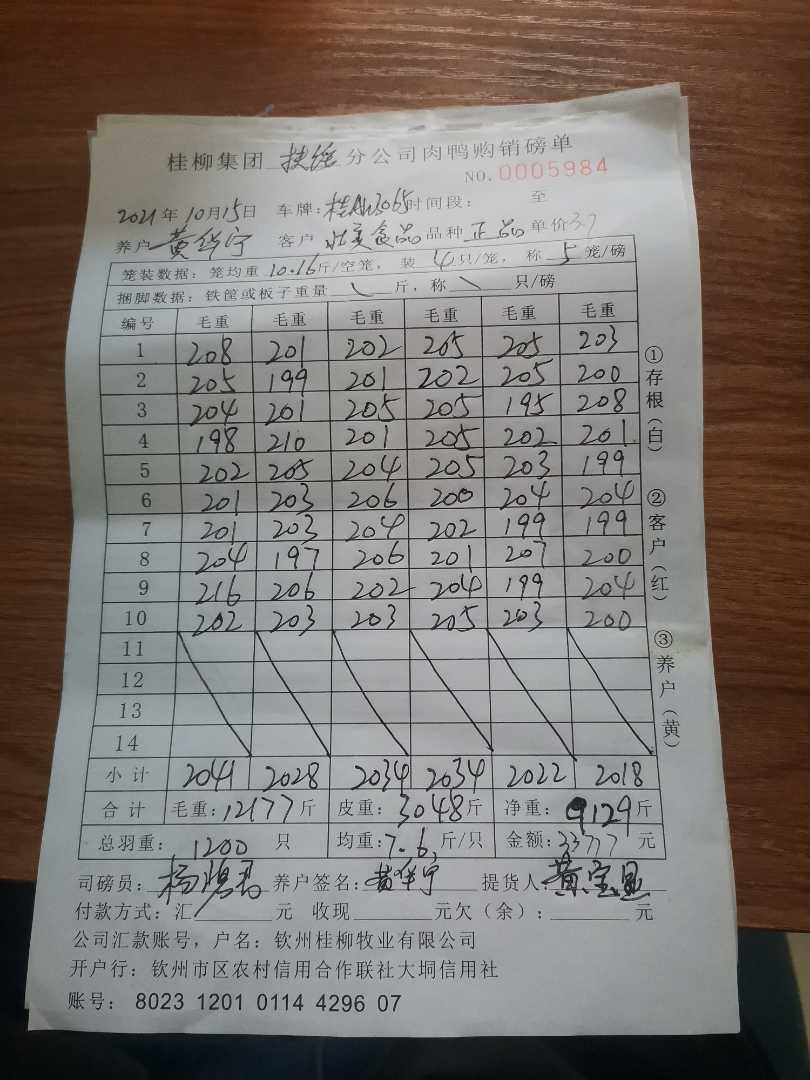 桂柳集团 扶绥 分公司肉鸭购销磅单
NO. 0005984
2021年10月15日 车牌: 3065 时间段: 至
养户 黄华宁 客户 壮美食品 品种 正品 单价 3.7
笼装数据: 笼均重 10.16 斤/空笼, 装 4 只/笼, 称 5 笼/磅
捆脚数据: 铁筐或板子重量 \ 斤, 称 \ 只/磅
编号 毛重 毛重 毛重 毛重 毛重 毛重
1 208 201 202 205 205 203
2 205 199 201 202 205 200
3 204 201 205 205 195 208
4 198 210 201 205 202 201
5 202 205 204 205 203 199
6 201 203 206 200 204 204
7 201 203 204 202 199 199
8 204 197 206 201 207 200
9 216 206 202 204 199 204
10 202 203 203 205 203 200
11
12
13
14
小计 2041 2028 2034 2034 2022 2018
合计 毛重: 12177 斤 皮重: 3048 斤 净重: 9129 斤
总羽重: 1200 只 均重: 7.6 斤/只 金额: 33777 元
司磅员: 养户签名: 黄华宁 提货人: 黄宝
付款方式: 汇 元 收现 元欠(余): 元
公司汇款账号, 户名: 钦州桂柳牧业有限公司
开户行: 钦州市区农村信用合作联社大垌信用社
账号: 8023 1201 0114 4296 07
①存根(白) ②客户(红) ③养户(黄)